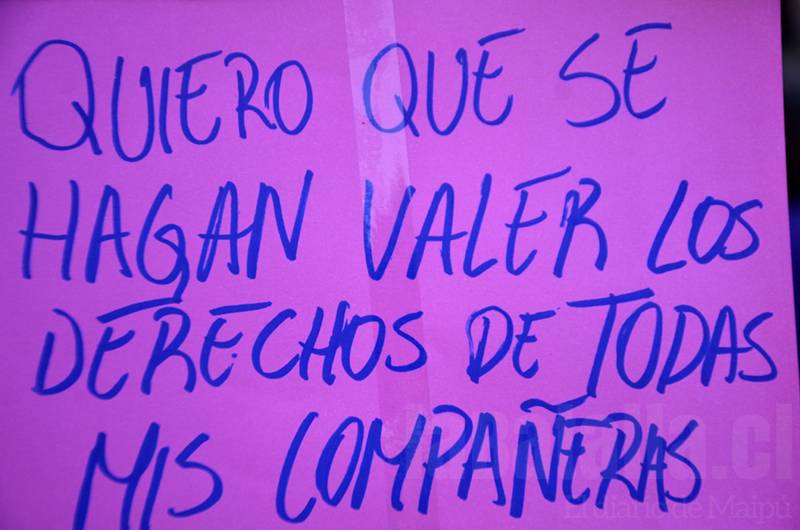 QUIERO QUE SE
HAGAN VALER LOS
DERECHOS DE TODAS
MIS COMPAÑERAS
El diario de Maipú